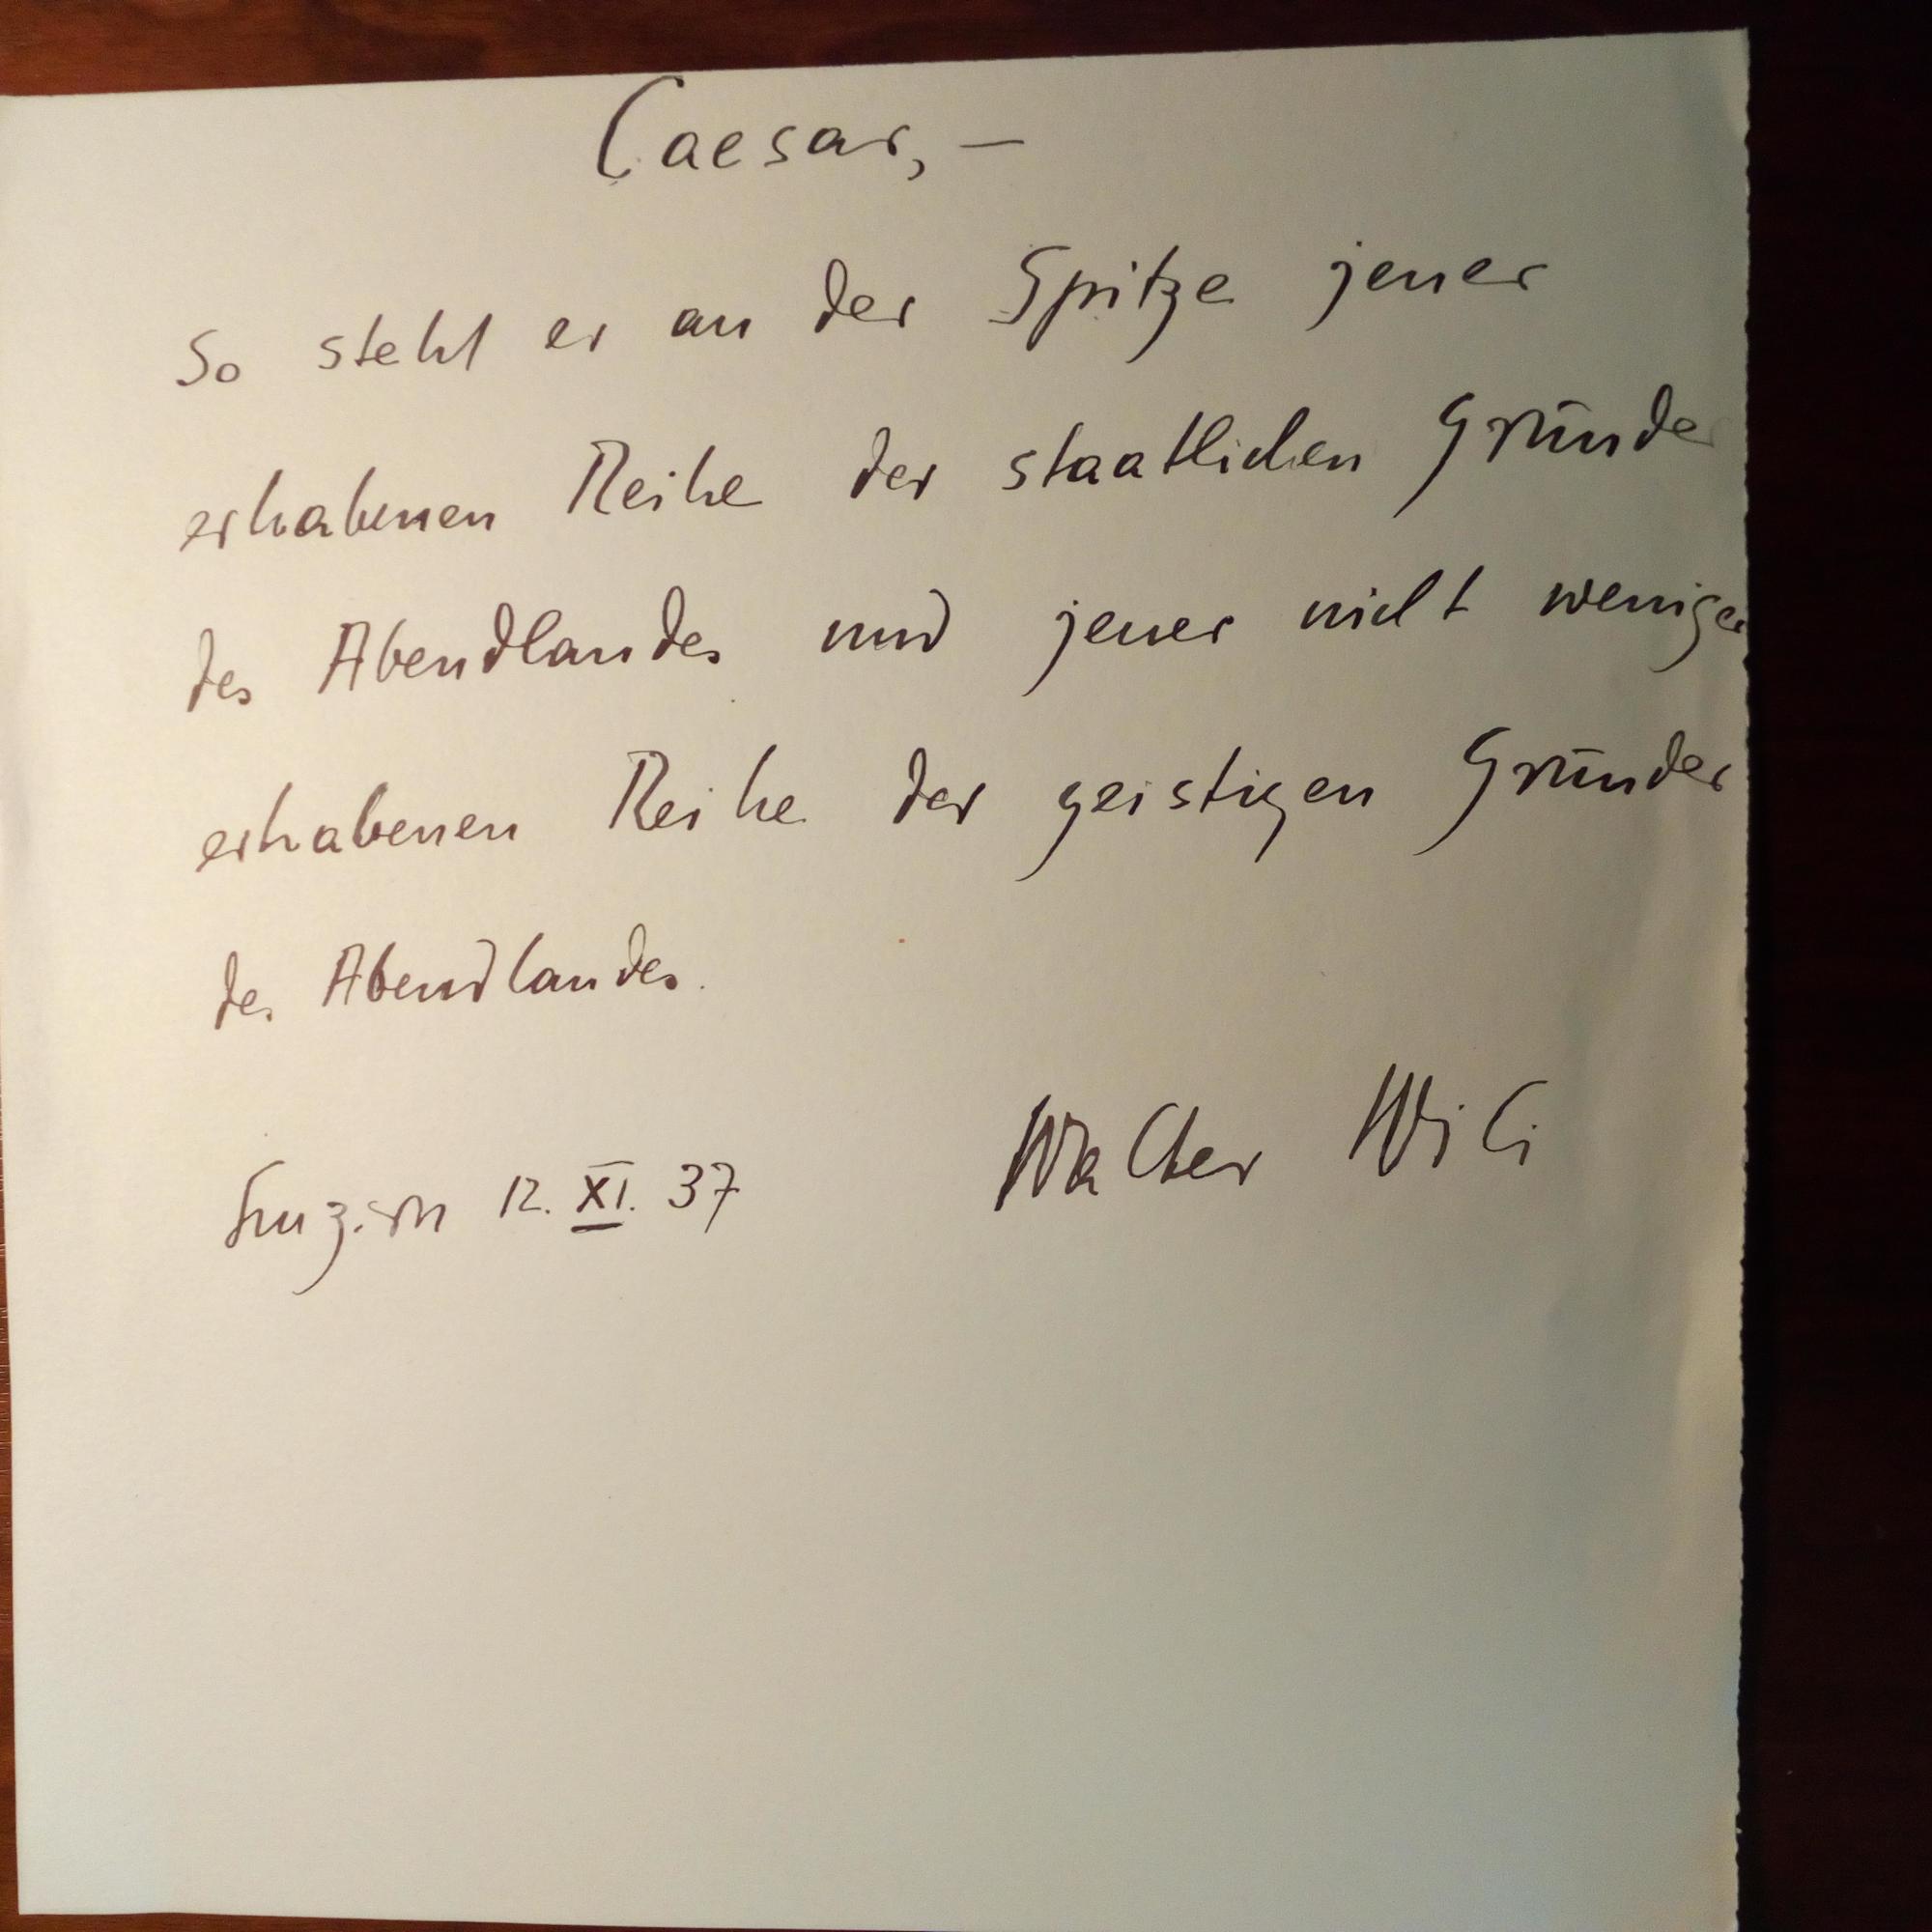 Caesar, —
So steht er an der Spitze jener
erhabenen Reihe der staatlichen Gründer
des Abendlandes und jener nicht weniger
erhabenen Reihe der geistigen Gründer
des Abendlandes.
12. XI. 37 Walter Wili